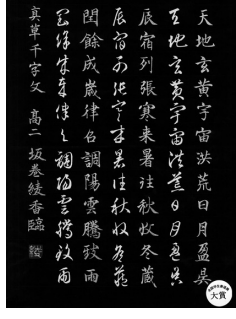 天地玄黄宇宙洪荒日月盈昃
天地玄黄宇宙洪荒日月盈昃
辰宿列張寒来暑往秋收冬蔵
辰宿列張寒来暑往秋收冬蔵
閏餘成歳律呂調陽雲騰致雨
閏餘成歳律呂調陽雲騰致雨
真草千字文 高二 坂巻綾香臨
大賞